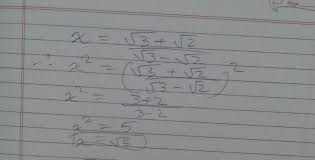 x = √3 + √2 / √3 - √2
∴ x² = (√3 + √2 / √3 - √2)²
x² = 3+2 / 3-2
x² = 5
x = √5